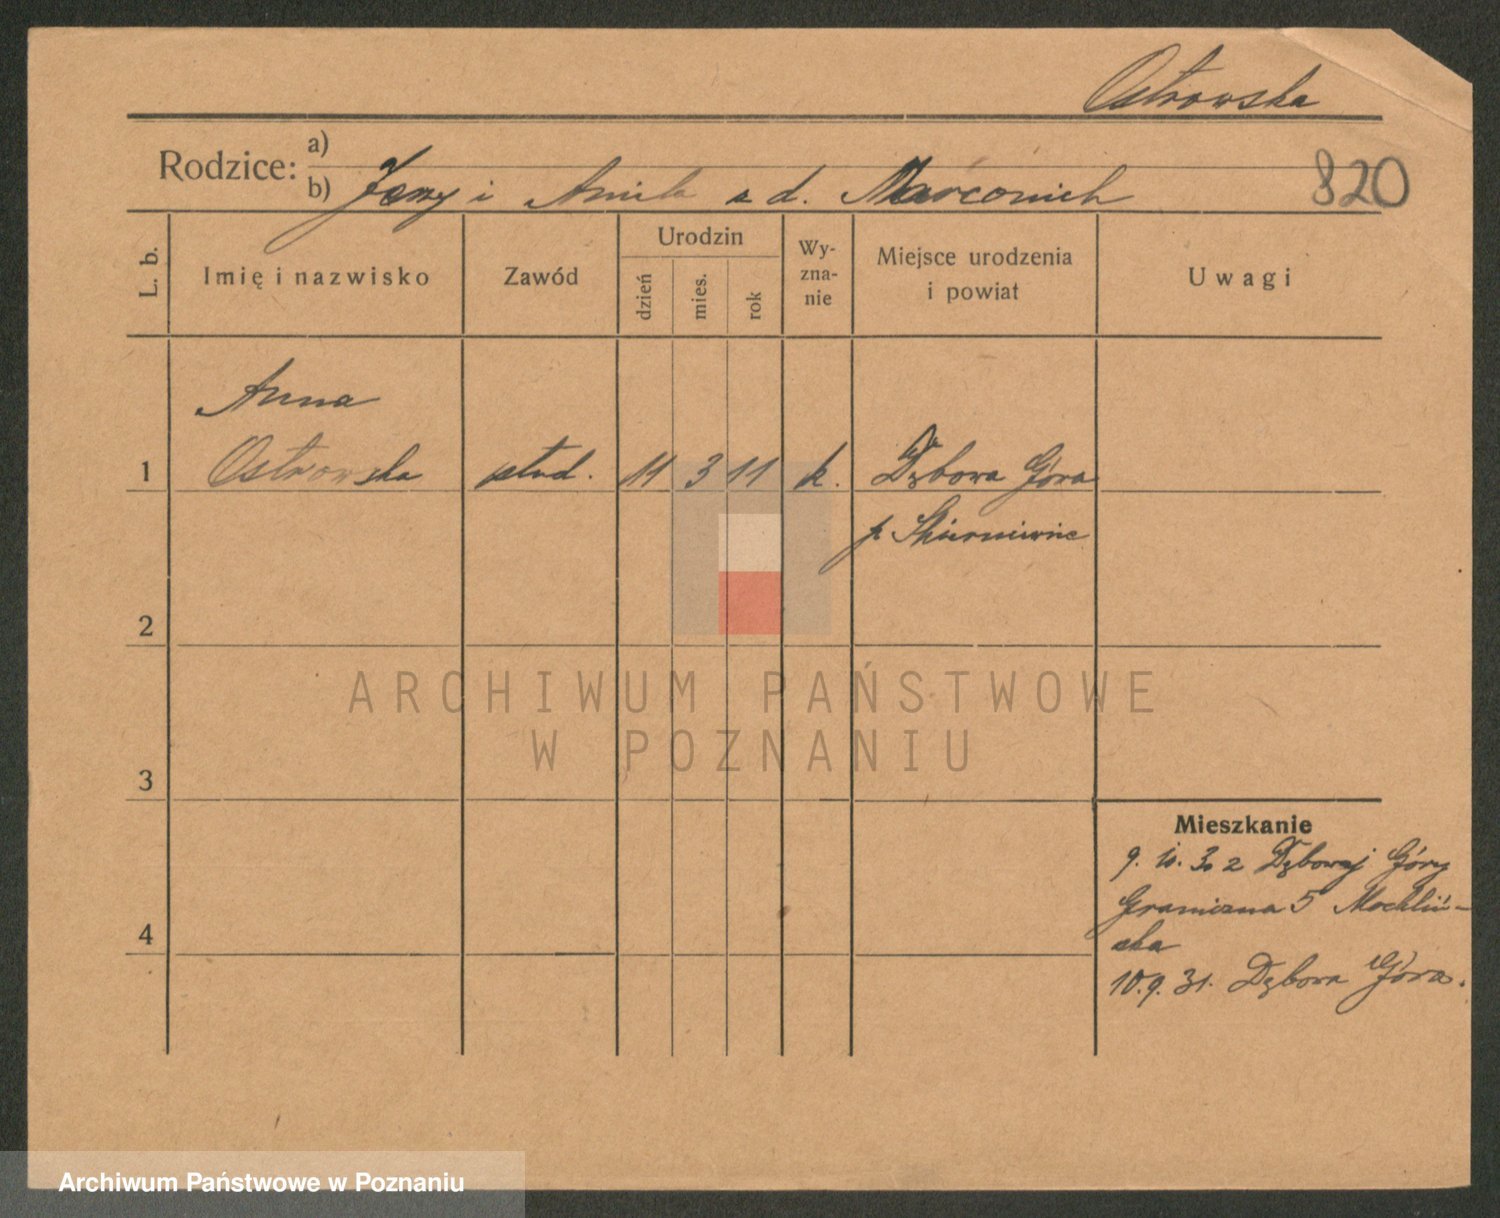 Ostrowska
Rodzice: a)
b) Jerzy i Aniela z d.
820
L. b.
Imię i nazwisko
Zawód
Urodzin
dzień
mies.
rok
Wy-
zna-
nie
Miejsce urodzenia
i powiat
Uwagi
Anna
1 Ostrowska stud. 11 3 11 k. Dębowa Góra
p. Skierniewice
2
3
4
Mieszkanie
9. 10. 30 z Dębowej Góry
Graniczna 5
ska
10.9.31. Dębowa Góra.
ARCHIWUM PAŃSTWOWE
W POZNANIU
Archiwum Państwowe w Poznaniu